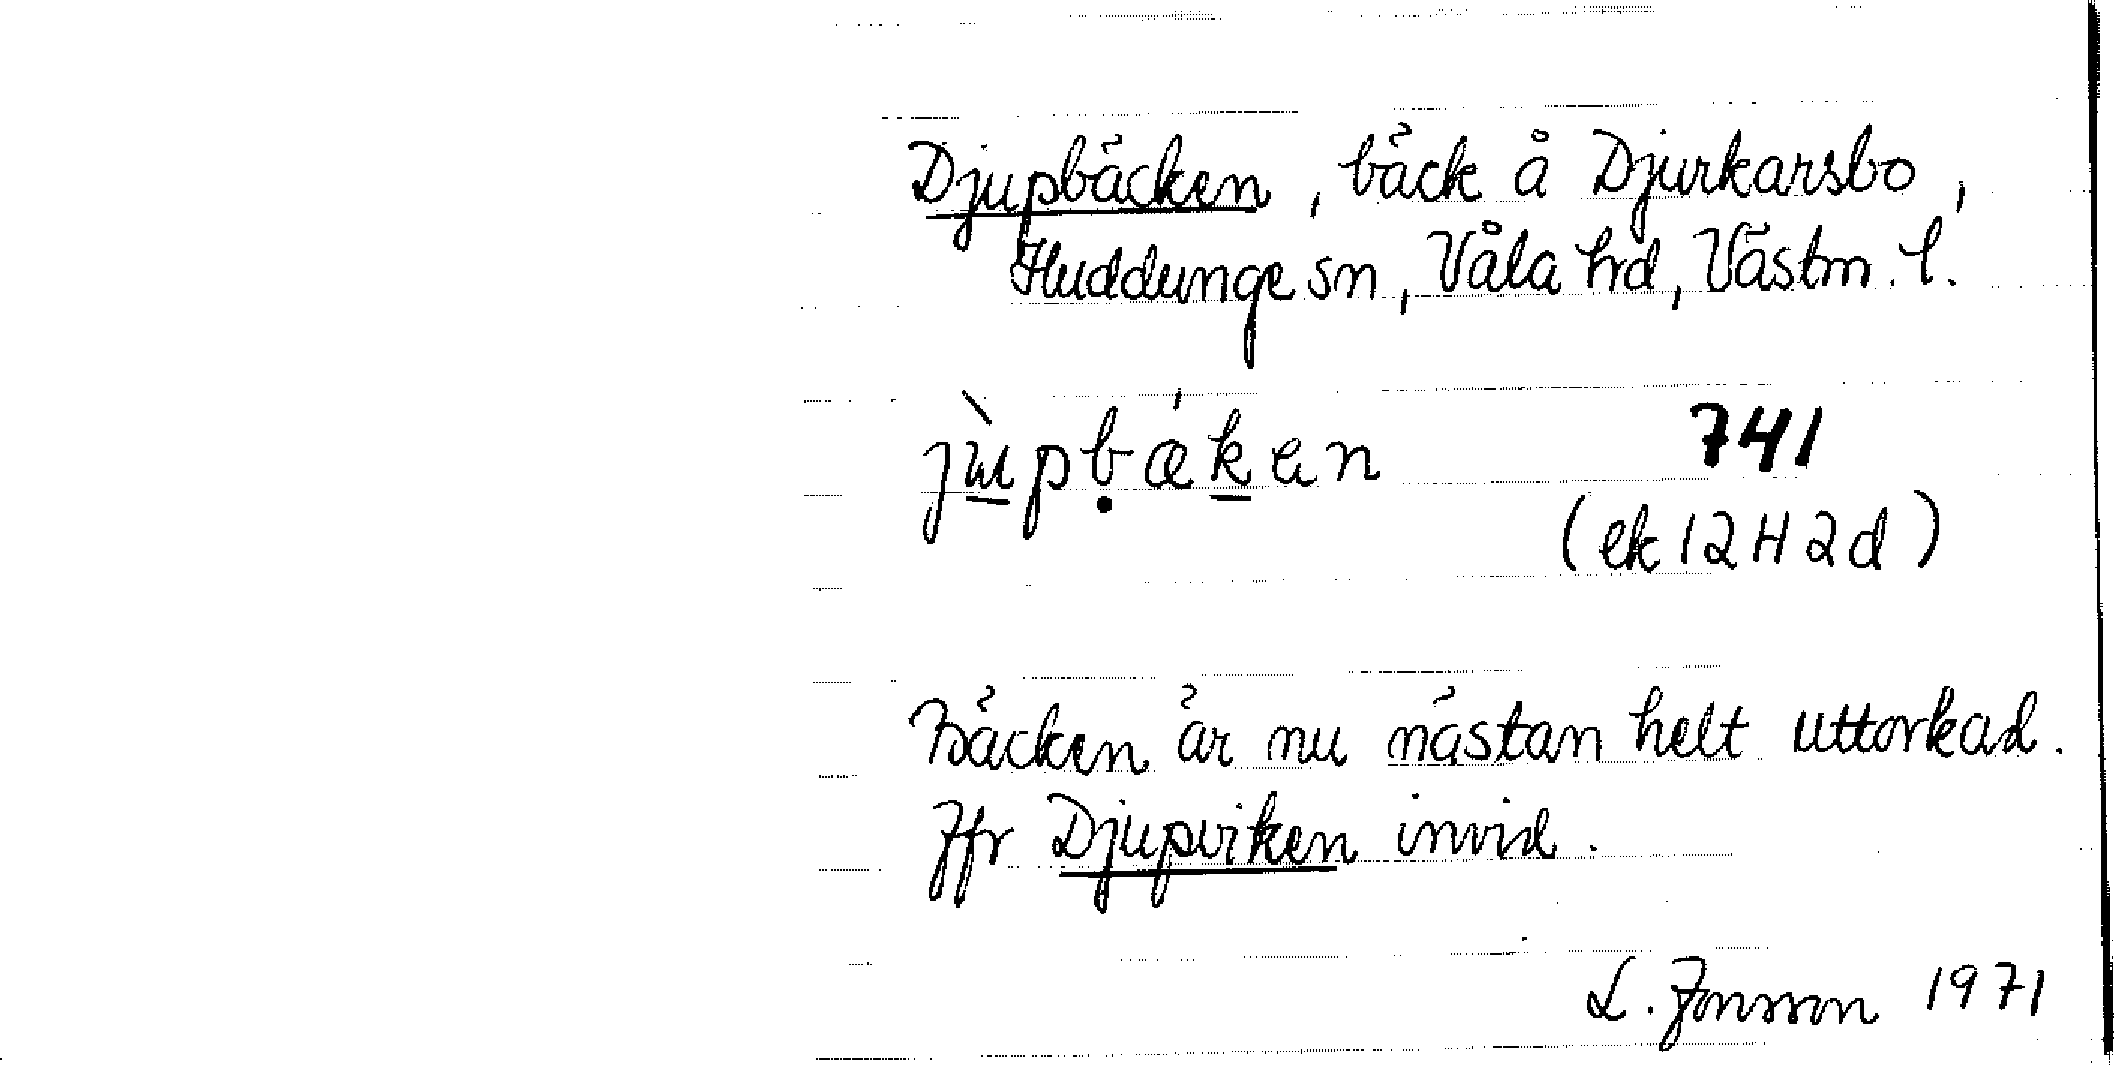 Djupbäcken, bäck å Djurkarsbo,
Huddunge sn, Våla hd, Västm. l.
jùpḅǽken 741
(ek 12H2d)
Bäcken är nu nästan helt uttorkad.
Jfr Djupviken invid.
L. Jonsson 1971